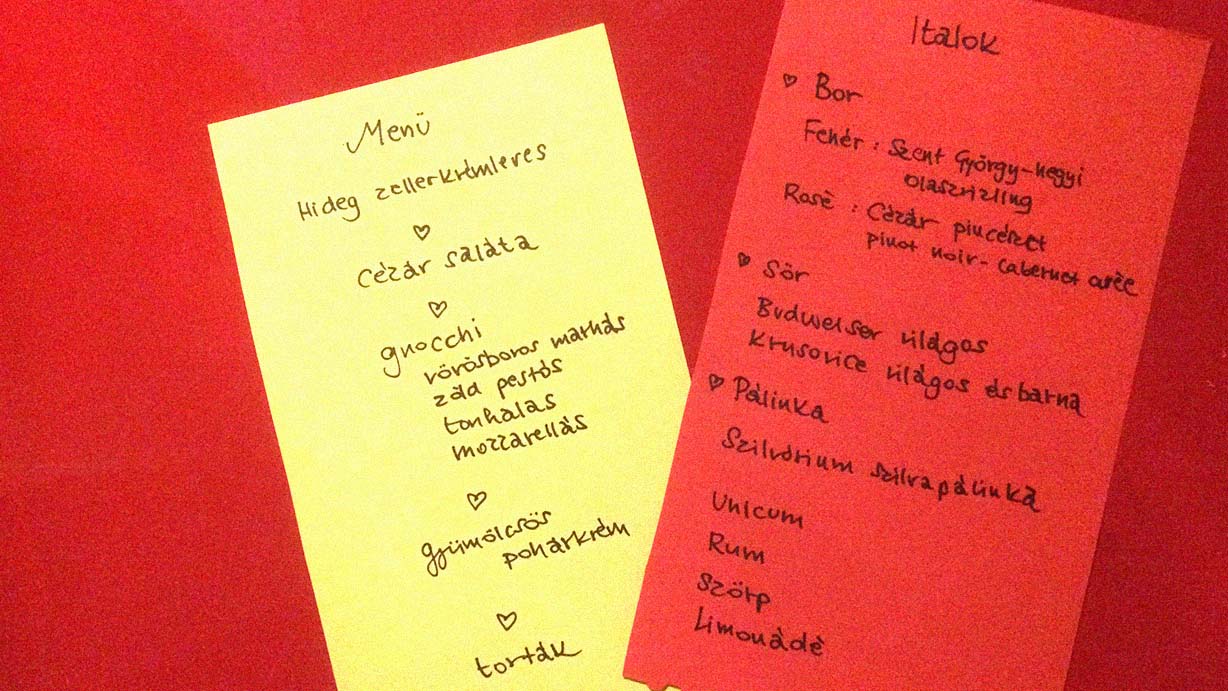 Menü
Hideg zellerkrémleves
Cézár saláta
gnocchi
vörösboros marhás
zöld pestós
tonhalas
mozzarellás
gyümölcsös
pohárkrém
torták
Italok
Bor
Fehér: Szent György-hegyi
olaszrizling
Rosè: Cézár pincészet
pinot noir - cabernet
Sör
Budweiser világos
Krusovice világos és barna
Pálinka
Szilvórium szilvapálinka
Unicum
Rum
Szörp
Limonàdè